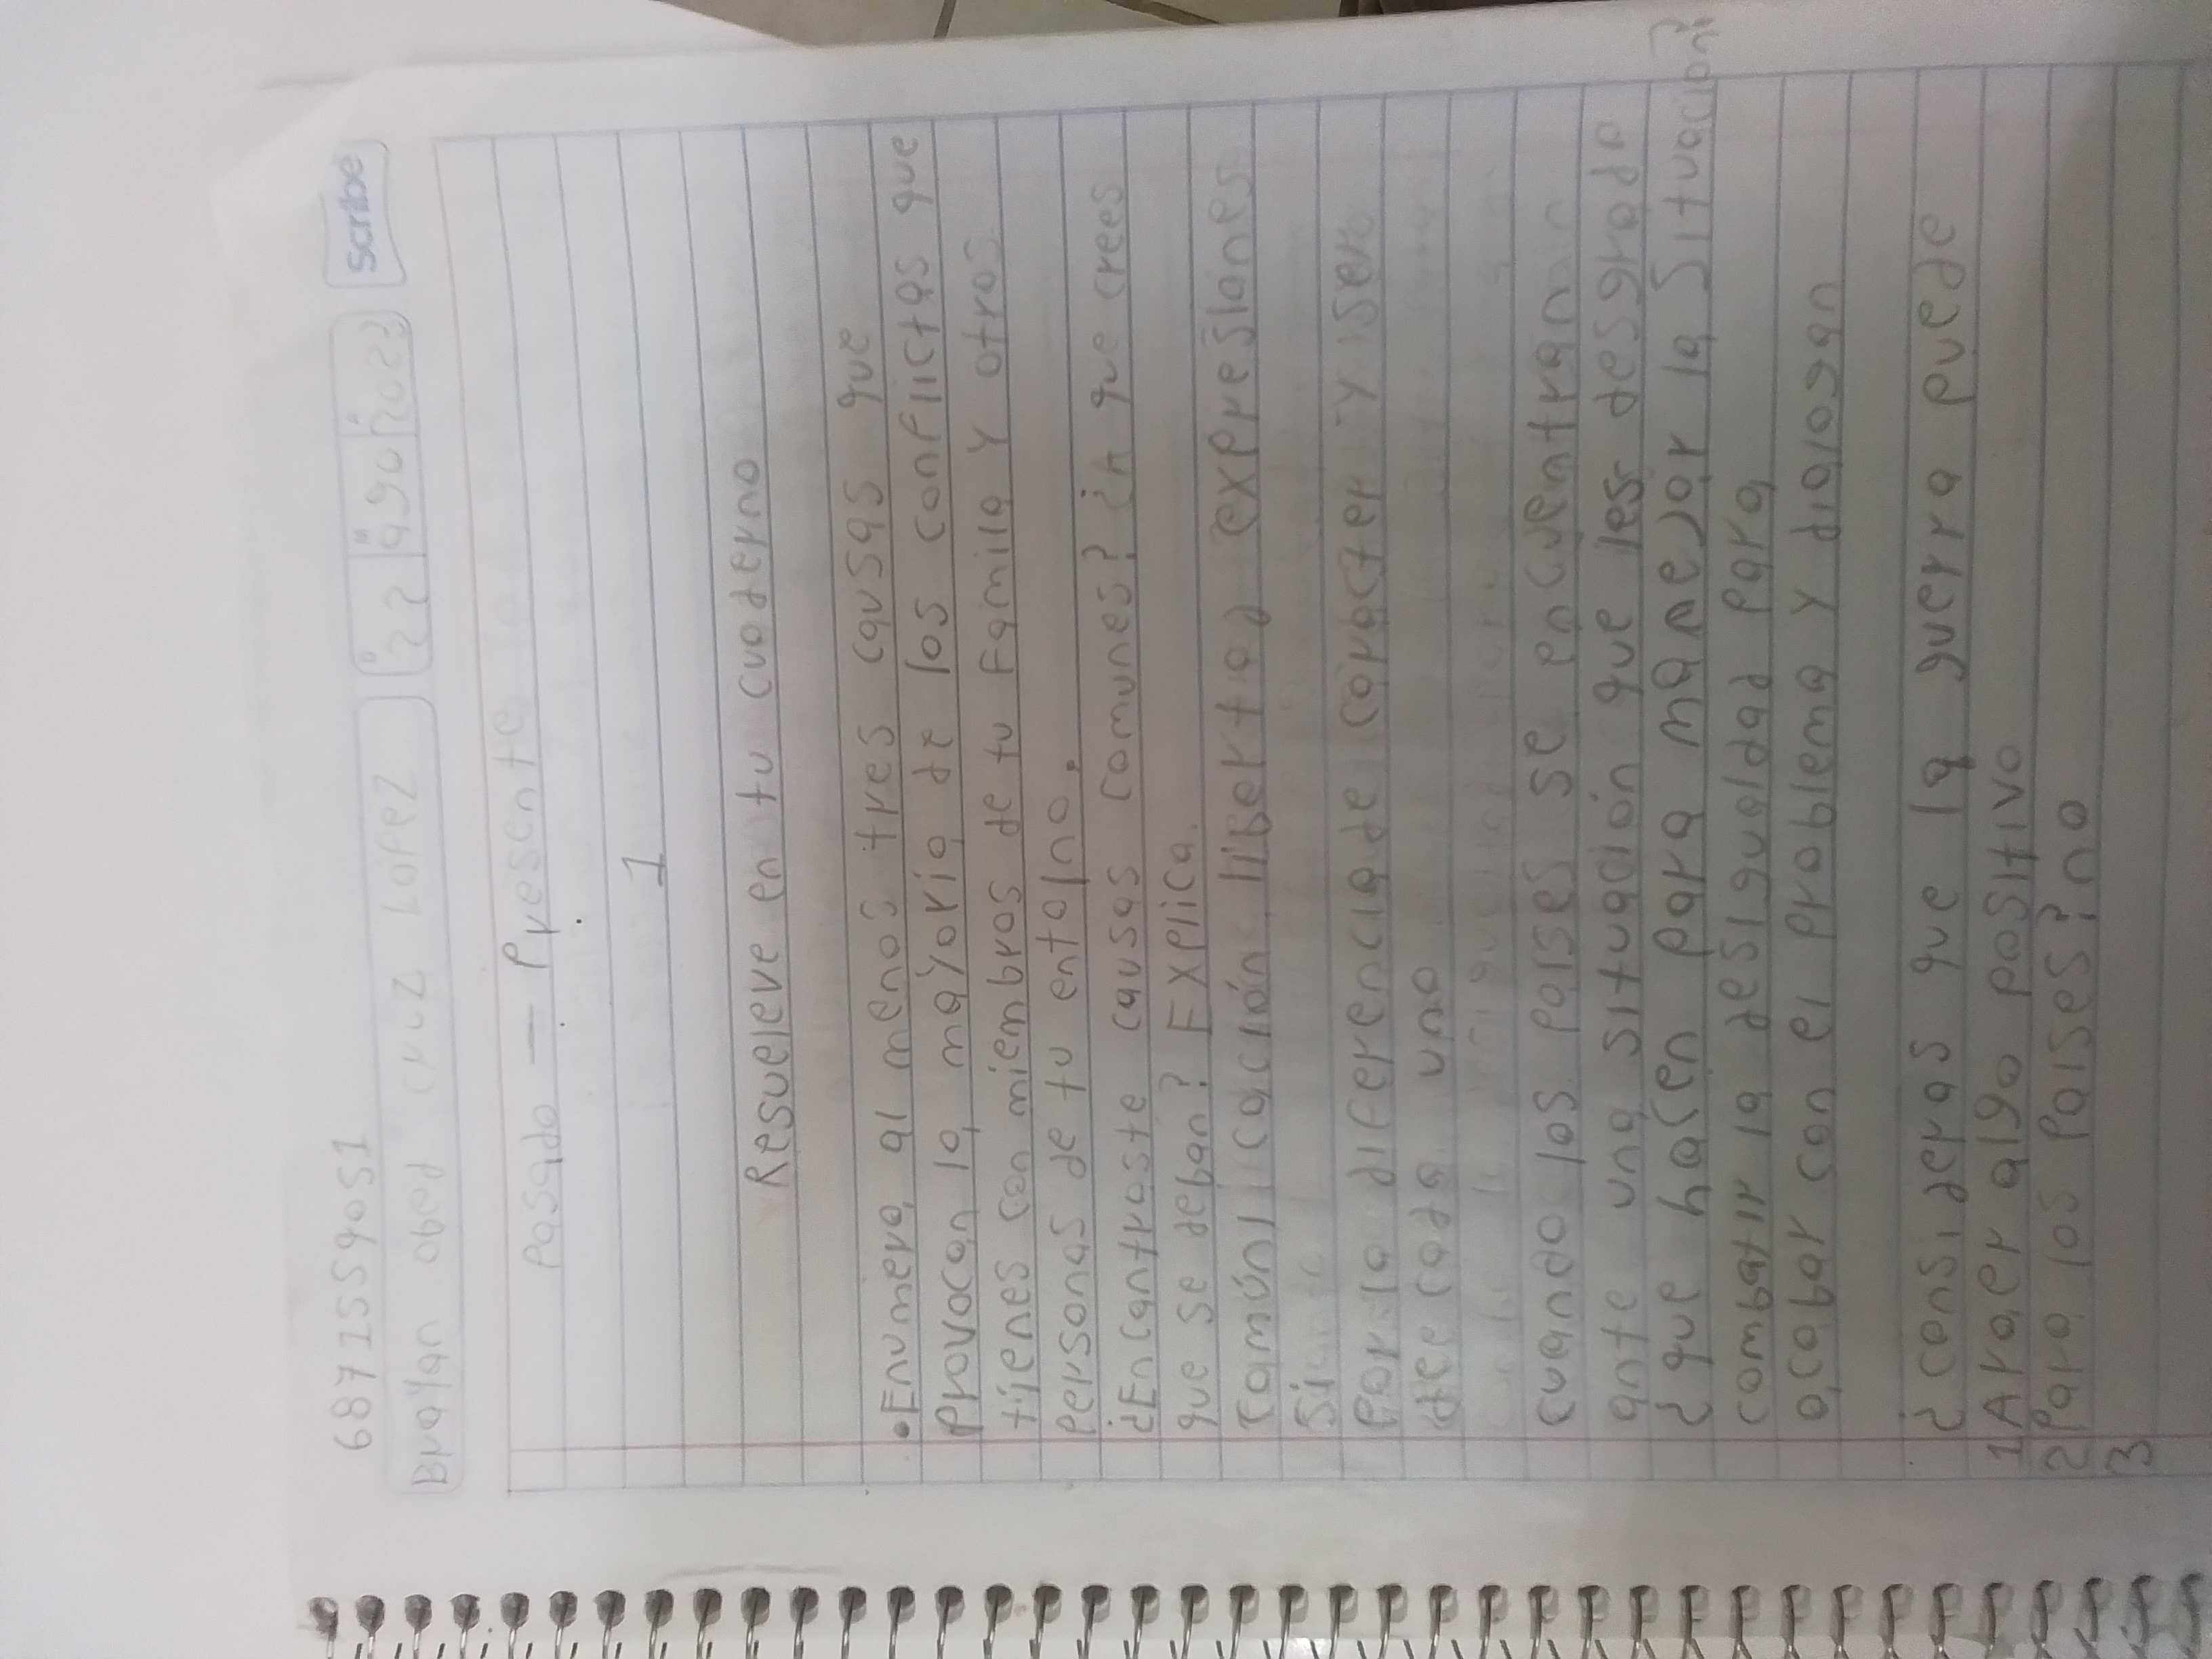 6871559051
Brayan obed cruz López 22 agO 2023 Scribe
Pasado — Presente
1
Resueleve en tu cuaderno
• Enumera al menos tres causas que
provocan la mayoria de los conflictas que
tienes con miembros de tu Familia y otros
personas de tu entorno.
¿Encantraste causas comunes? ¿A que crees
que se deban? Explica.
comúnicación libertad expresiones
si
por la diferencia de caracter y ser
dee cada uno
cuando los paises se encuentran
ante una situación que les desgrada
¿que hasen para manejar la situación?
combatir la desigualdad para
acabar con el problema y dialogan
¿censideras que la guerra puede
1 Araer algo positivo
2 Para los paises? no
3